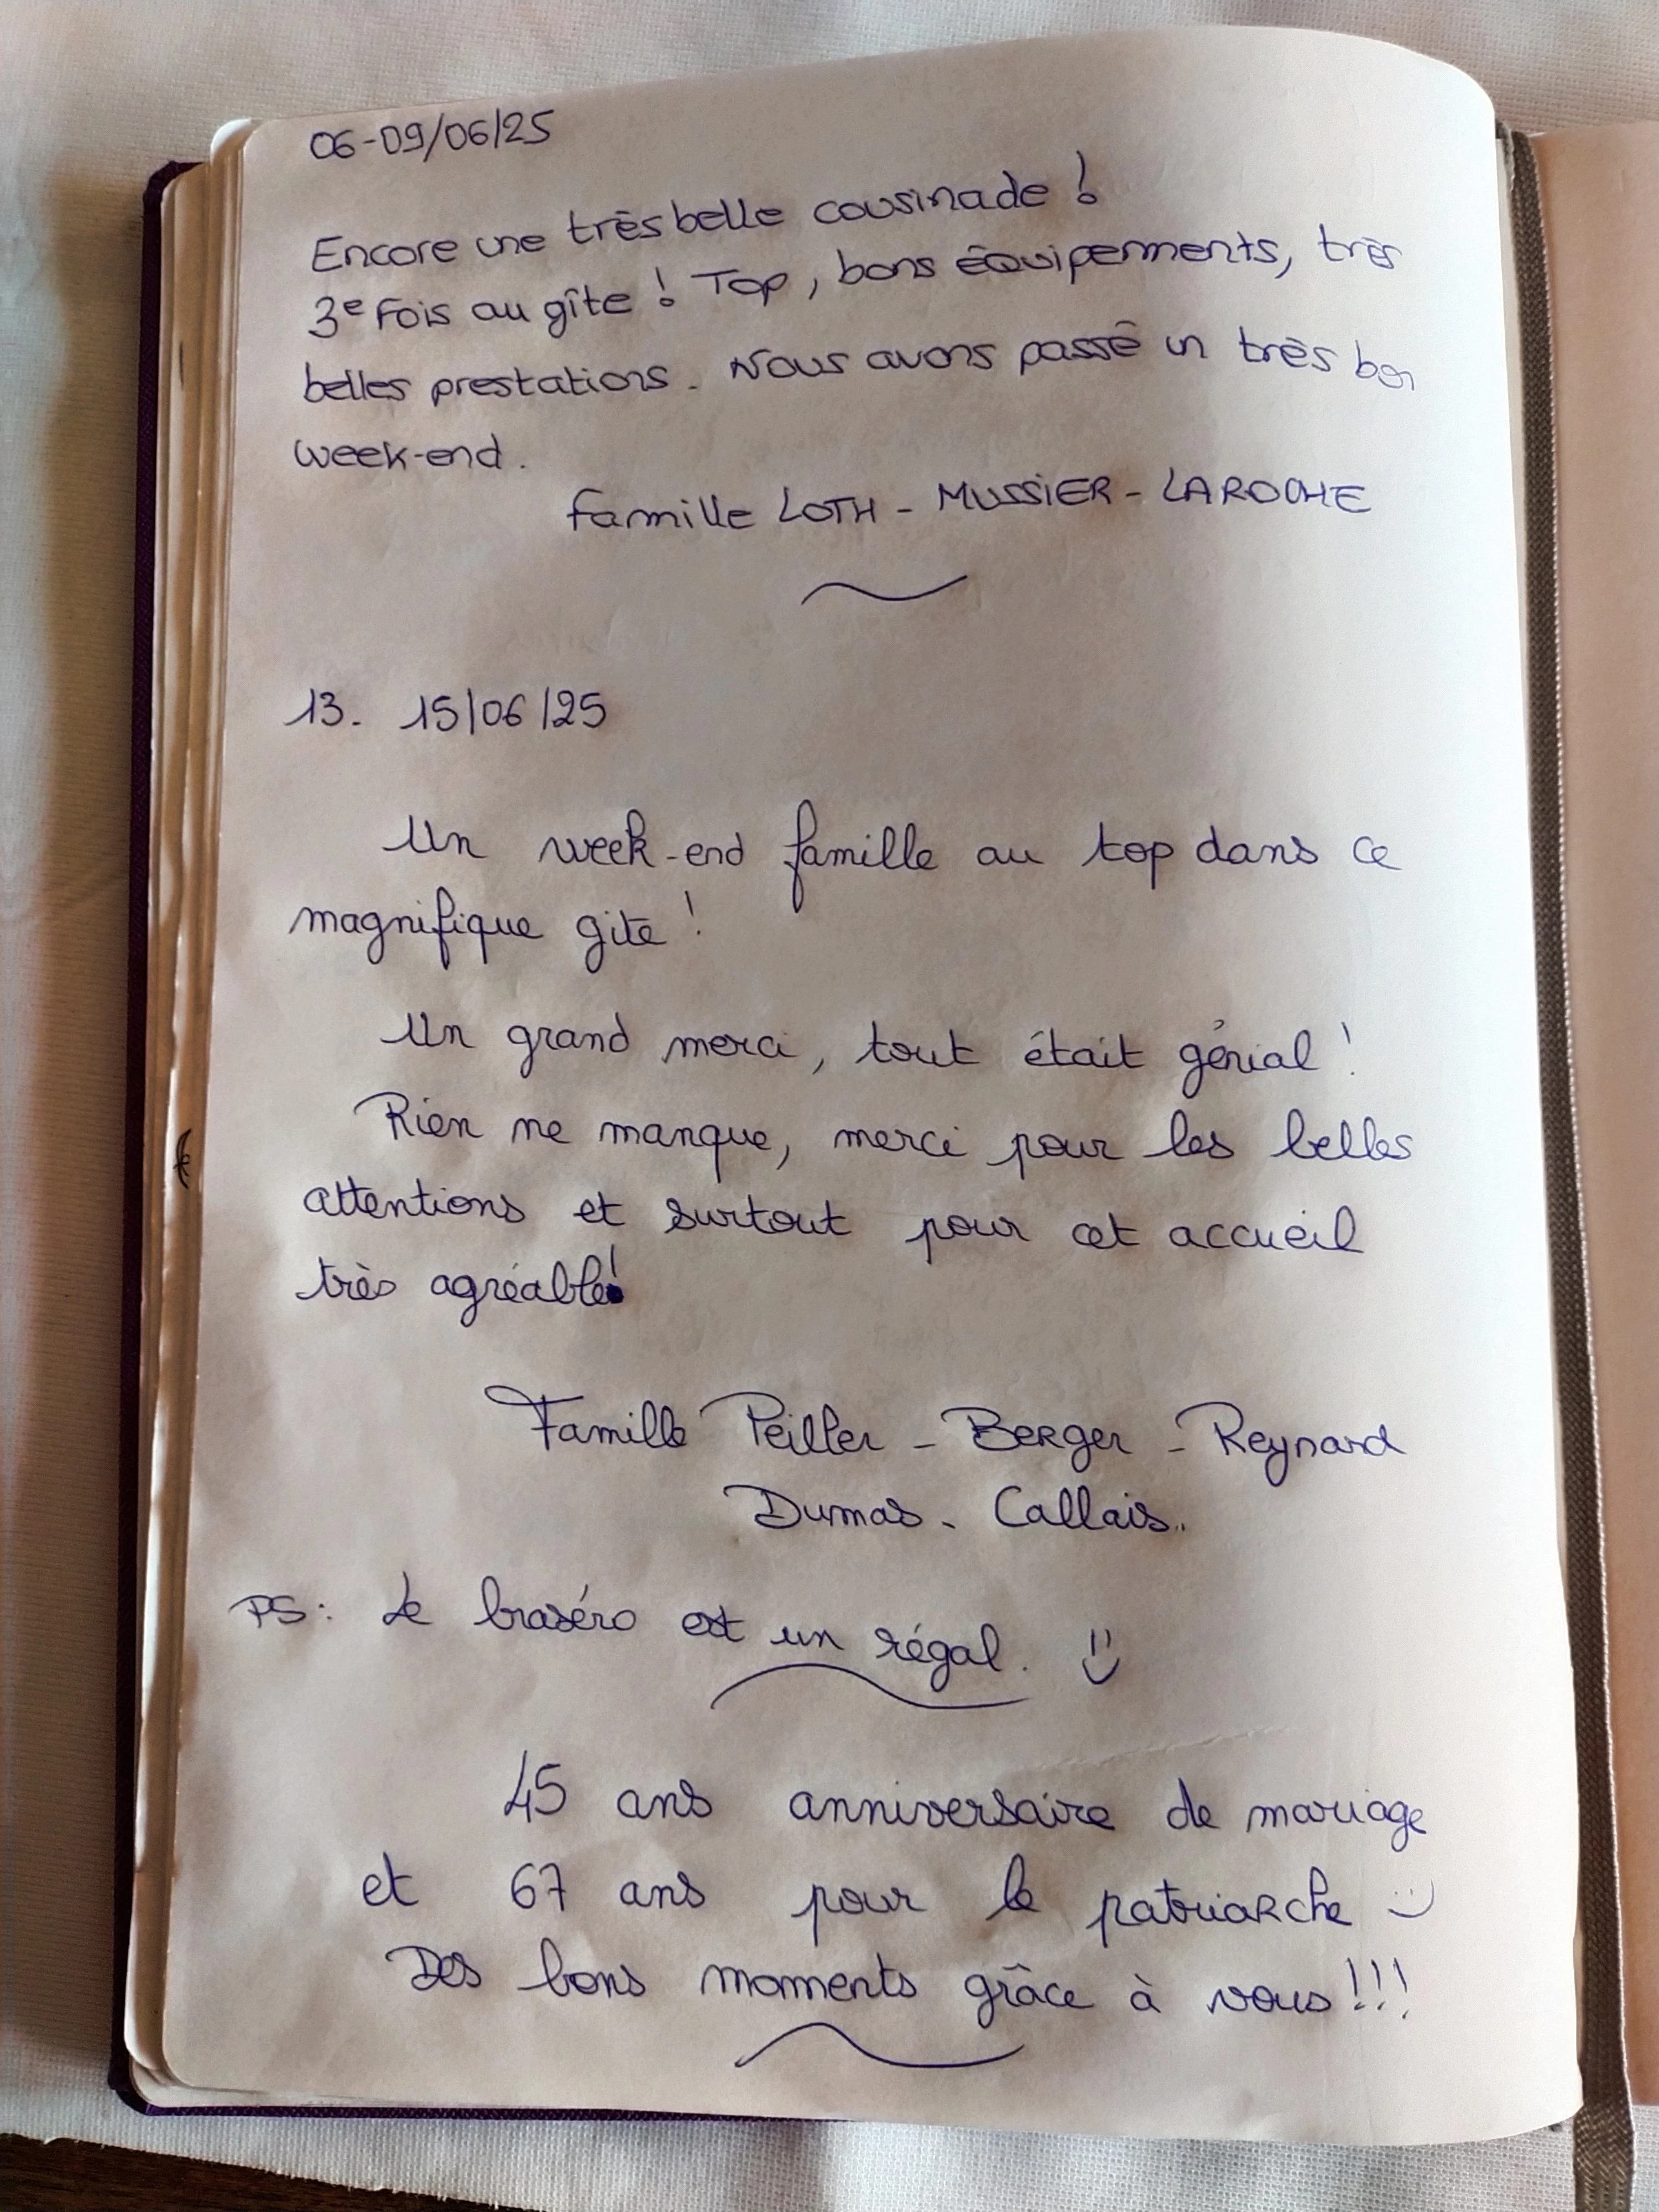 06-09/06/25
Encore une très belle cousinade !
3e Fois au gîte ! Top, bons équipements, très
belles prestations. Nous avons passé un très bon
week-end.
Famille LOTH - MUSSIER - LAROCHE
13. 15/06/25
Un week-end famille au top dans ce
magnifique gite !
Un grand merci, tout était génial !
Rien ne manque, merci pour les belles
attentions et surtout pour cet accueil
très agréable!
Famille Peiller - Berger - Reynard
Dumas - Callais..
PS: Le braséro est un régal. :)
45 ans anniversaire de mariage
et 67 ans pour le patriarche :)
Des bons moments grâce à vous !!!